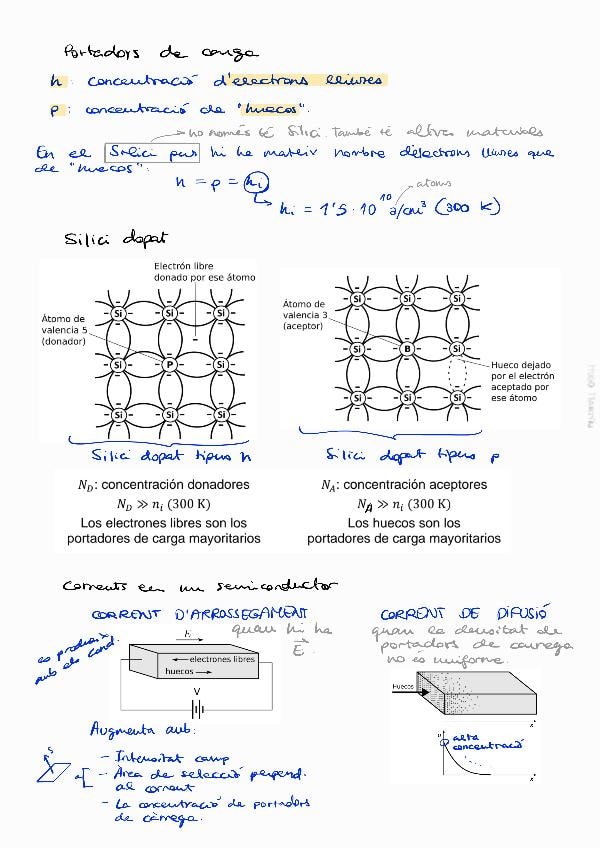 Portadors de càrrega
n: concentració d'electrons lliures
p: concentració de "huecos".
no només té Silici. També té altres materials
En el Silici pur hi ha mateix nombre d'electrons lliures que
de "huecos":
n = p = ni
atoms
ni = 1'5 · 10^10 a/cm³ (300 K)
Silici dopat
Electrón libre
donado por ese átomo
Átomo de
valencia 5
(donador)
Si Si Si
Si P Si
Si Si Si
Átomo de
valencia 3
(aceptor)
Si Si Si
Si B Si
Si Si Si
Hueco dejado
por el electrón
aceptado por
ese átomo
Silici dopat tipus n
Silici dopat tipus p
N_D: concentración donadores
N_D ≫ n_i (300 K)
Los electrones libres son los
portadores de carga mayoritarios
N_A: concentración aceptores
N_A ≫ n_i (300 K)
Los huecos son los
portadores de carga mayoritarios
Corrents en un semiconductor
CORRENT D'ARROSSEGAMENT
quan hi ha
E.
es produeix
amb els cond.
E
electrones libres
huecos
V
Augmenta amb:
- Intensitat camp
- Àrea de selecció perpend.
al corrent
- La concentració de portadors
de càrrega.
S
CORRENT DE DIFUSIÓ
quan la densitat de
portadors de càrrega
no és uniforme.
Huecos
x
alta
concentració
x